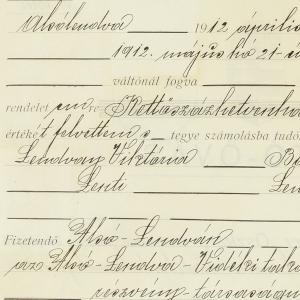 Alsólendva 1912 április
1912. május hó 21-é
váltónál fogva
rendelet em re Kettőszázhetvenha
értéke t felvettem s tegye számolásba tudó
Lendvay Viktória
Lenti Len
Fizetendő Alsó-Lendván
az Alsó-Lendva-Vidéki tak
részvény-társaság